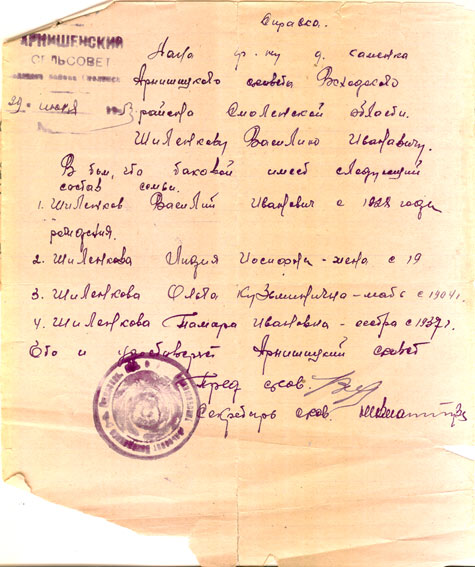 Справка.
АРНИШЕНСКИЙ
СЕЛЬСОВЕТ
Дана гр-ну д. каменка
Арнишицкого с/совета Всходского
29. июня
района Смоленской области.
Шиленкову Василию Ивановичу.
В том, что таковой имеет следующий
состав семьи.
1. Шиленков Василий Иванович с 1928 года
рождения.
2. Шиленкова Лидия жена с 19
3. Шиленкова Кузьминична - мать с 1904 г.
4. Шиленкова Тамара Ивановна - сестра с 1937 г.
Что и удостоверяет Арнишицкий с/совет
Пред. с/сов.
Секретарь с/сов.